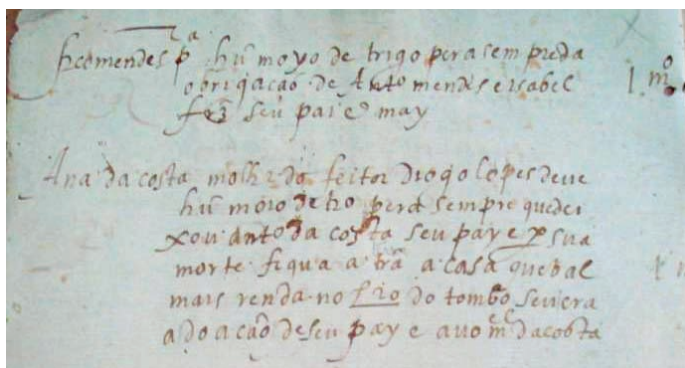 frcomendes pᵃ hũ moyo de trigo pera sempre da
obrigacaõ de Antᵒ mendes e isabel 1 mᵒ
frz̃ seu pai e may
Ana da costa molher do feitor Diogo lopes deve
hũ moio de tᵒ pera sempre que dei
xou antᵒ da costa seu pay e p sua
morte fiqua a trã a casa que val
mais renda no fᵒ 20 do tombo se vera
a doacaõ de seu pay e avo mᵉˡ da costa